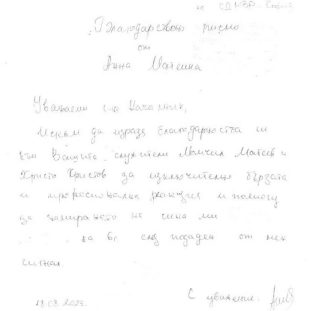 на СДВР - София
"Благодарствено писмо
от
Анна Матеина
Уважаеми г-н Началник,
Искам да изразя благодарността си
към Вашите служители Момчил Матеев и
Христо Христов за изключително бързата
и професионална реакция и помощ
за намирането на сина ми
на 6г. след подаден от мен
сигнал.
С уважение: